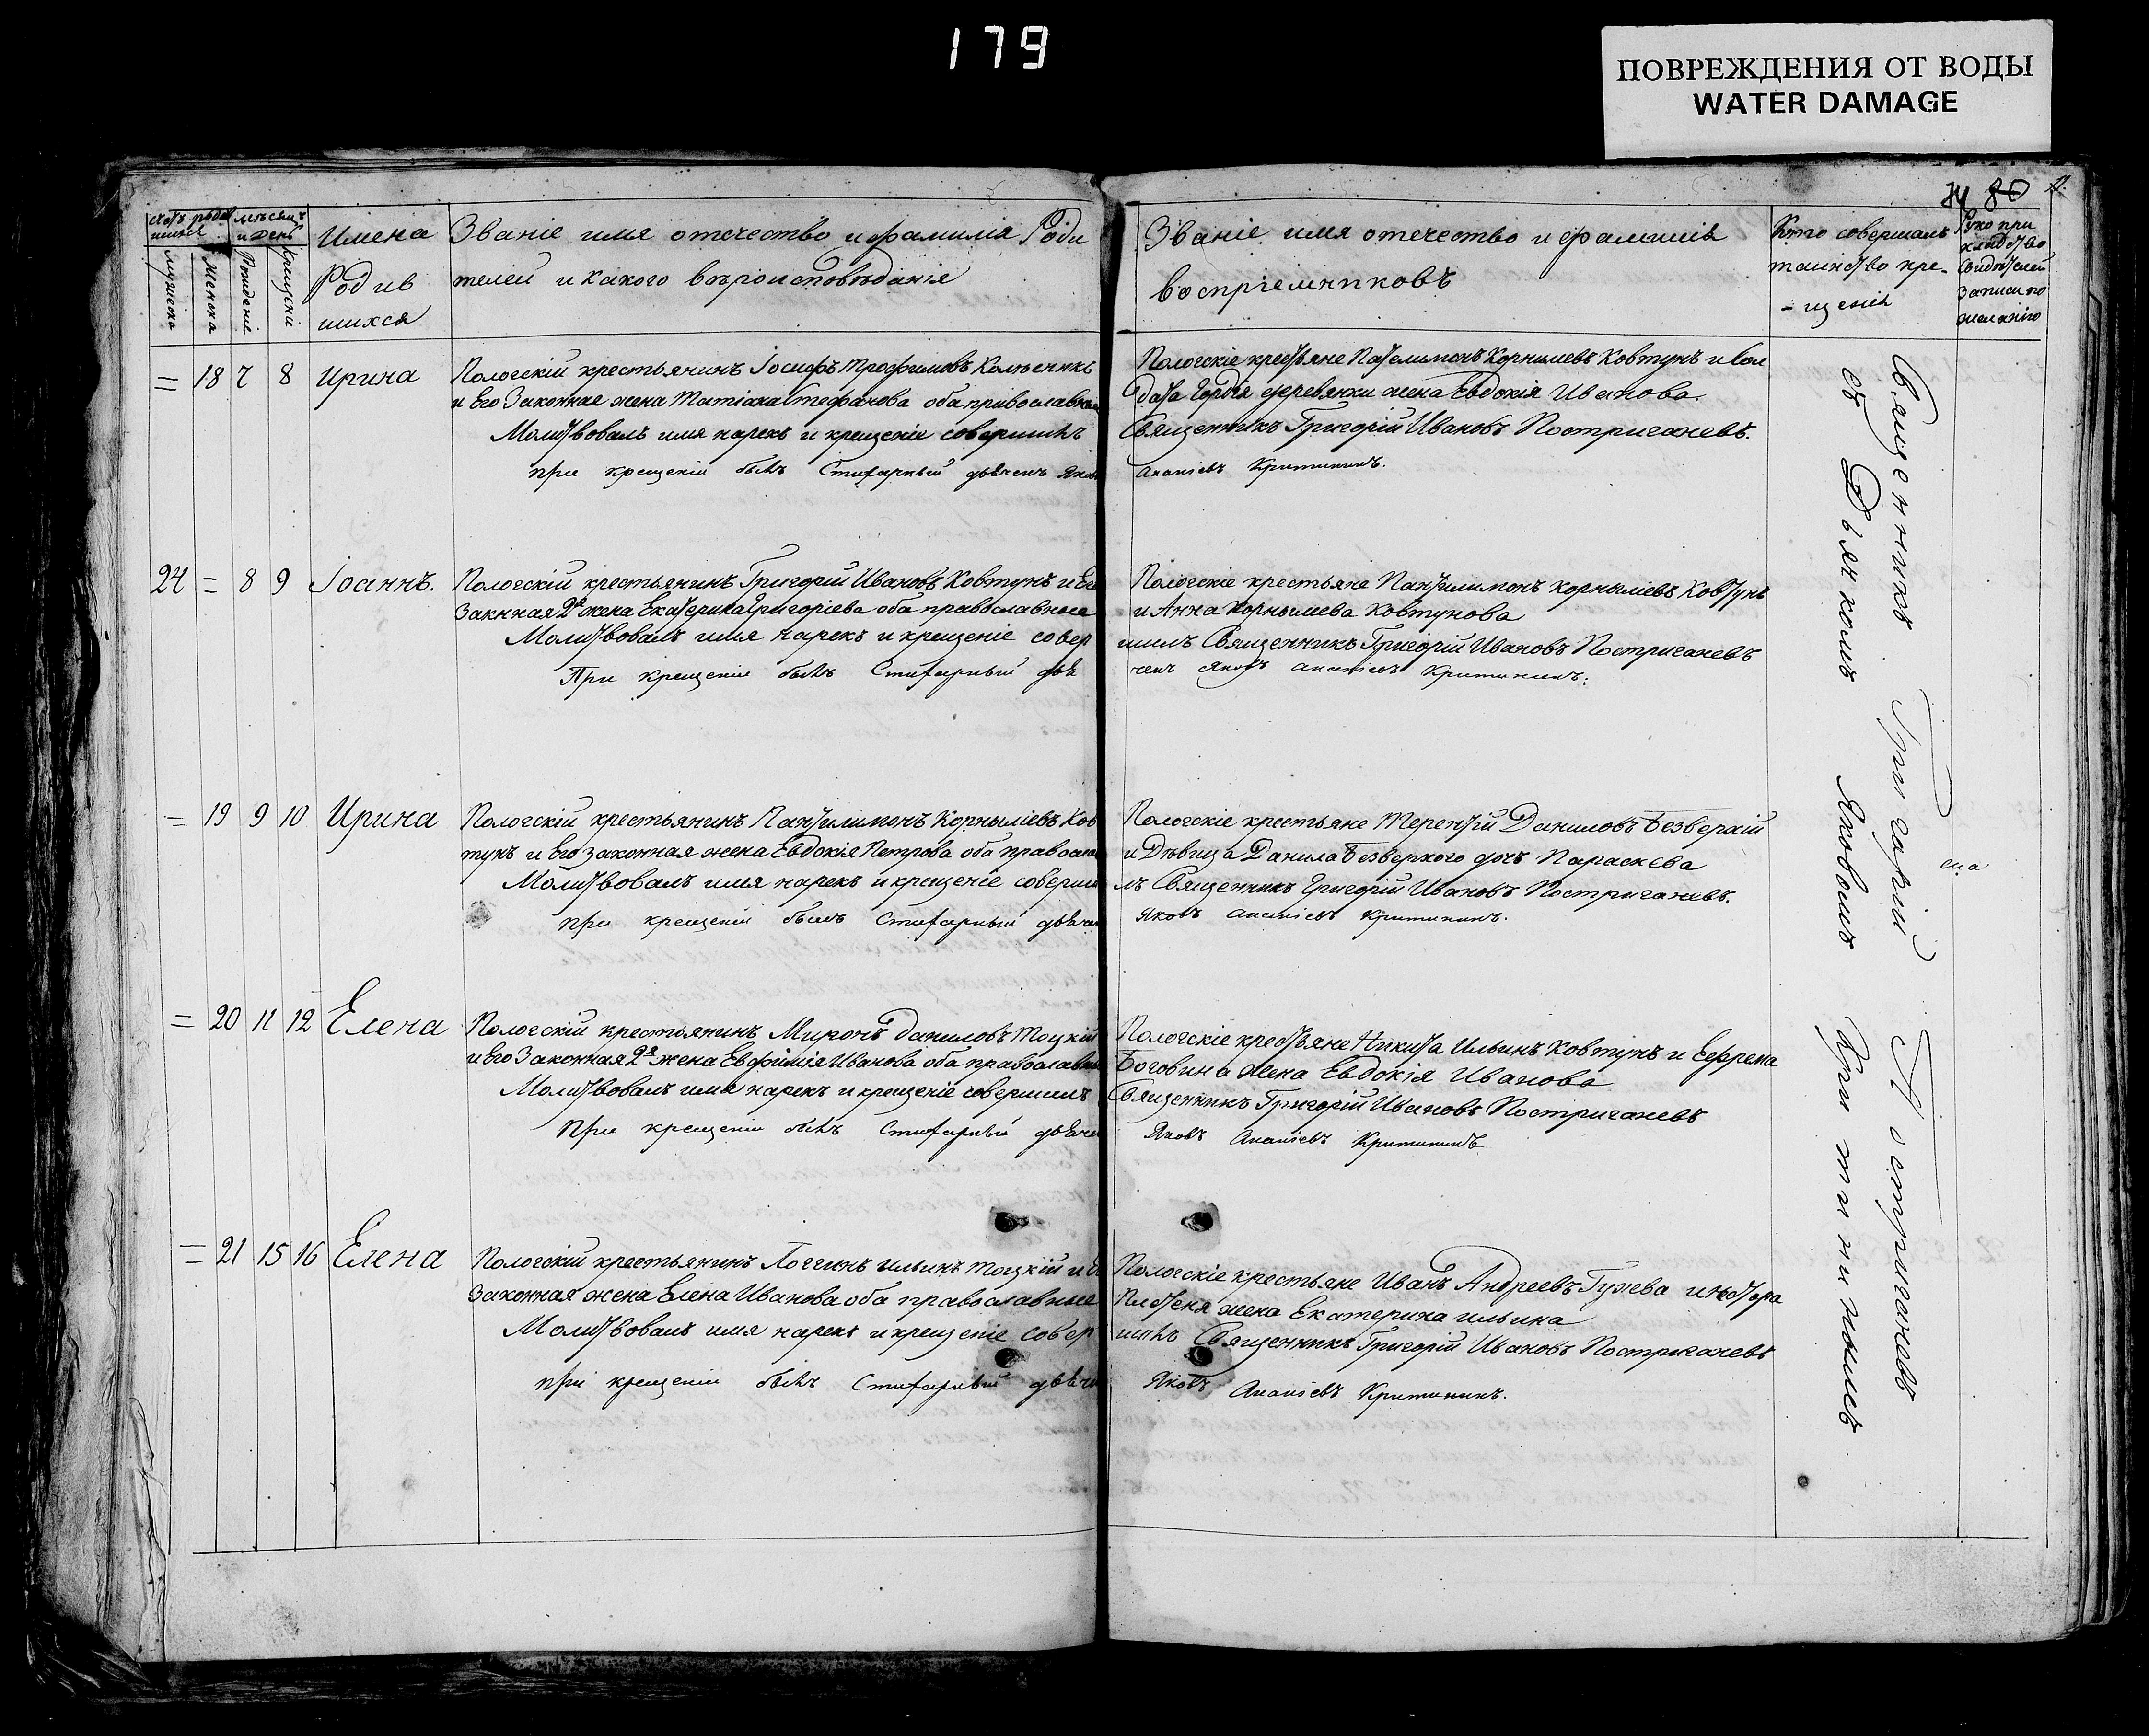 179
ПОВРЕЖДЕНИЯ ОТ ВОДЫ
WATER DAMAGE
80
Счотъ родив
шихся
мѣсяцъ
и день
мужеска
Женска
Рождение
Крещени
Имена
Родив
шихся
Званіе имя отечество и фамилія Роди
телей и какого вѣроисповѣданія
Званіе имя отечество и фамилія
воспріемниковъ
Кто совершалъ
таинство кре-
-щенія
Руко при
кладство
свидѣтелей
записи по
желанію
= 18 7 8 Ирина
Пологскій крестьянинъ Іосифъ Трофимовъ Колѣсникъ
и Его Законная жена Татіана Стефанова оба православные
Молитвовалъ имя нарекъ и крещеніе совершилъ
при крещеніи былъ Стихарный дьяченъ Яковъ
Пологскіе крестьяне Пателимонъ Корнылиевъ Ковтунъ и Сол
дата Гордѣя деревянки жена Евдокія Иванова.
Священникъ Григорій Ивановъ Постригачевъ.
Ананіевъ Критининъ.
24 = 8 9 Іоаннъ.
Пологскій крестьянинъ Григорій Ивановъ Ковтунъ и Его
Закнная 2я жена Екатерина Григоріева оба православные
Молитвовалъ имя нарекъ и крещеніе совер
При крещеніи былъ Стихарный дья
Пологскіе крестьяне Пантилимонъ Корныліевъ Ковтунъ
и Анна Корнылиева Ковтунова
шилъ Священникъ Григорій Ивановъ Постригачевъ
ченъ Яковъ Ананіевъ Критининъ.
= 19 9 10 Ирина
Пологскій крестьянинъ Пантилимонъ Корныліевъ Ков
тунъ и Его законная жена Евдокія Петрова оба правосла
Молитвовалъ имя нарекъ и крещеніе соверши
при крещеніи былъ Стихарный дьячен
Пологскіе крестьяне Терентій Даниловъ Безверхій
и Дѣвица Данила Безверхого дочь Параскева
лъ Священникъ Григорій Ивановъ Постригачевъ.
Яковъ Ананіевъ Критининъ.
= 20 11 12 Елена
Пологскій крестьянинъ Миронъ Даниловъ Тоцкій
и Его Законная 2я жена Евфимія Иванова оба православные
Молитвовалъ имя нарекъ и крещеніе совершилъ
При крещеніи былъ Стихарный дьячен
Пологскіе крестьяне Никита Ильинъ Ковтунъ и Ефрема
Боговина жена Евдокія Иванова
Священникъ Григорій Ивановъ Постригачевъ
Яковъ Ананіевъ Критининъ
= 21 15 16 Елена
Пологскій крестьянинъ Логгинъ Ильинъ Тоцкій и Его
Законная жена Елена Иванова оба православные
Молитвовалъ имя нарекъ и крещеніе совер
при крещеніи былъ Стихарный дьячен
Пологскіе крестьяне Иванъ Андреевъ Гужева и Нестора
жена Екатерина Ильина
шилъ Священникъ Григорій Ивановъ Постригачевъ
Яковъ Ананіевъ Критининъ.
Священникъ Григорій Постригачевъ
съ Дьячкомъ Яковомъ Критининымъ